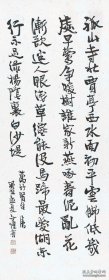 孤山寺北賈亭西水面初平雲脚低幾
處早鶯爭暖樹誰家新燕啄春泥亂花
漸欲迷人眼淺草纔能沒馬蹄最愛湖東
行不足綠楊陰裏白沙堤